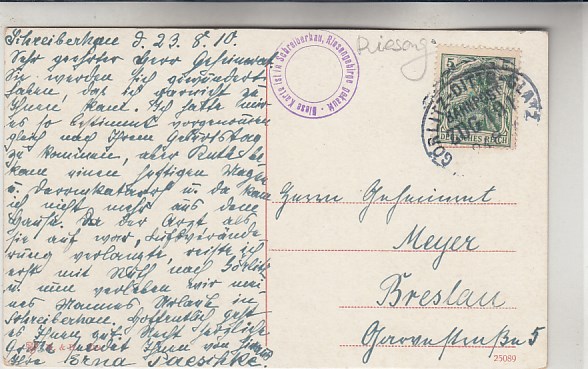 Schreiberhau d. 23. 8. 10.
Sehr geehrter Herr Geheimrat
Sie werden sich gewundert
haben, daß ich garnicht zu
Ihnen kam. Ich hatte mir
es so bestimmt vorgenommen
gleich nach Ihrem Geburtstag
zu kommen, aber Ruth be-
kam einen heftigen Magen
u. Darmkatarrh u. da kam
ich nicht mehr aus dem
Hause. Da der Arzt als
sie auf war, Luftverände-
rung verlangte, reiste ich
erst mit Ruth nach Görlitz
u. nun verleben wir mei-
nes Mannes Urlaub in
Schreiberhau. Hoffentlich geht
es Ihnen gut. Recht herzliche
Grüße sendet Ihnen von
Ihre Erna Paeschke.
Diese Karte ist in Schreiberhau, Riesengebirge gekauft
Rieseng.
5
DEUTSCHES REICH
GÖRLITZ-DITTERSB.-GLATZ
BAHNPOST
ZUG
Herrn Geheimrat
Meyer
Breslau
straße 5
25089